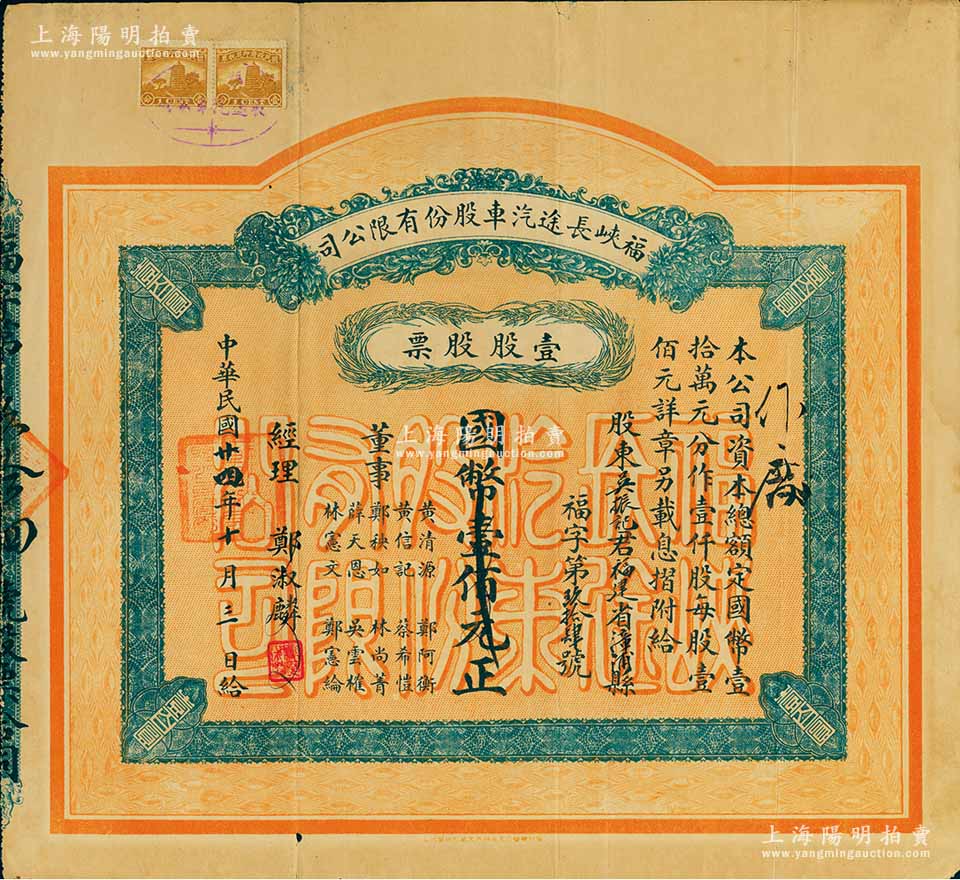 上海陽明拍賣
www.yangmingauction.com
福峽長途汽車股份有限公司
壹股股票
本公司資本總額定國幣壹
拾萬元分作壹仟股每股壹
佰元詳章另載息摺附給
股東吳振記君福建省漳浦縣
福字第玖拾肆號
國幣壹佰元正
董事
黃清源 鄭阿衡
黃信記 蔡希愷
鄭秧如 林尚菁
薛天恩 吳雲樵
林憲文 鄭憲綸
經理 鄭淑麟
中華民國廿四年十月三日給
作廢
上海陽明拍賣
www.yangmingauction.com
上海陽明拍賣
www.yangmingauction.com